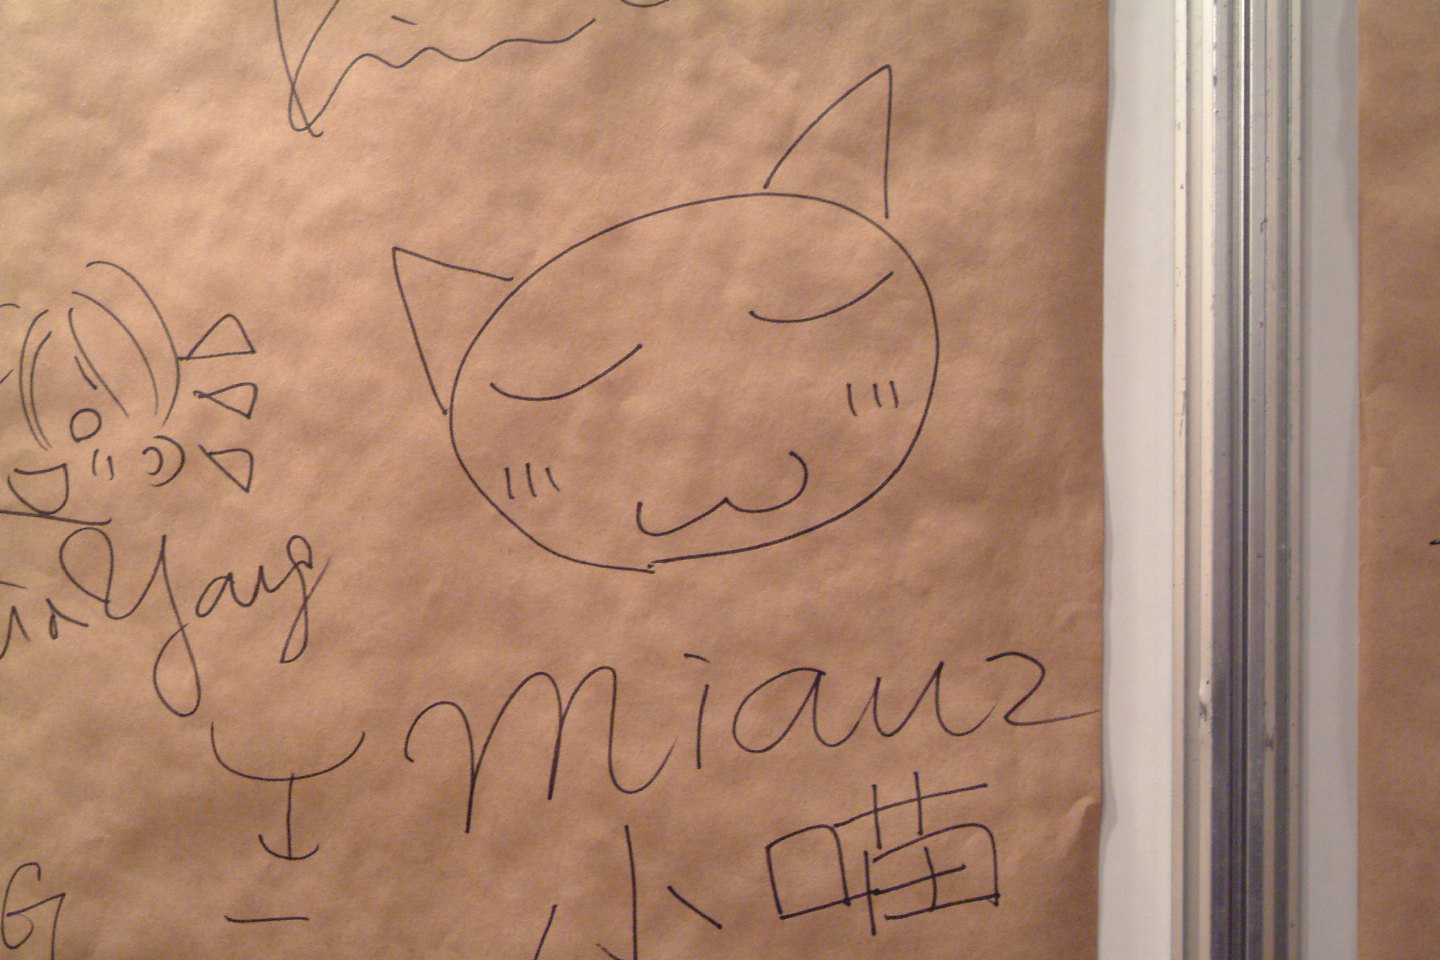 Yang
miauz
小喵
G